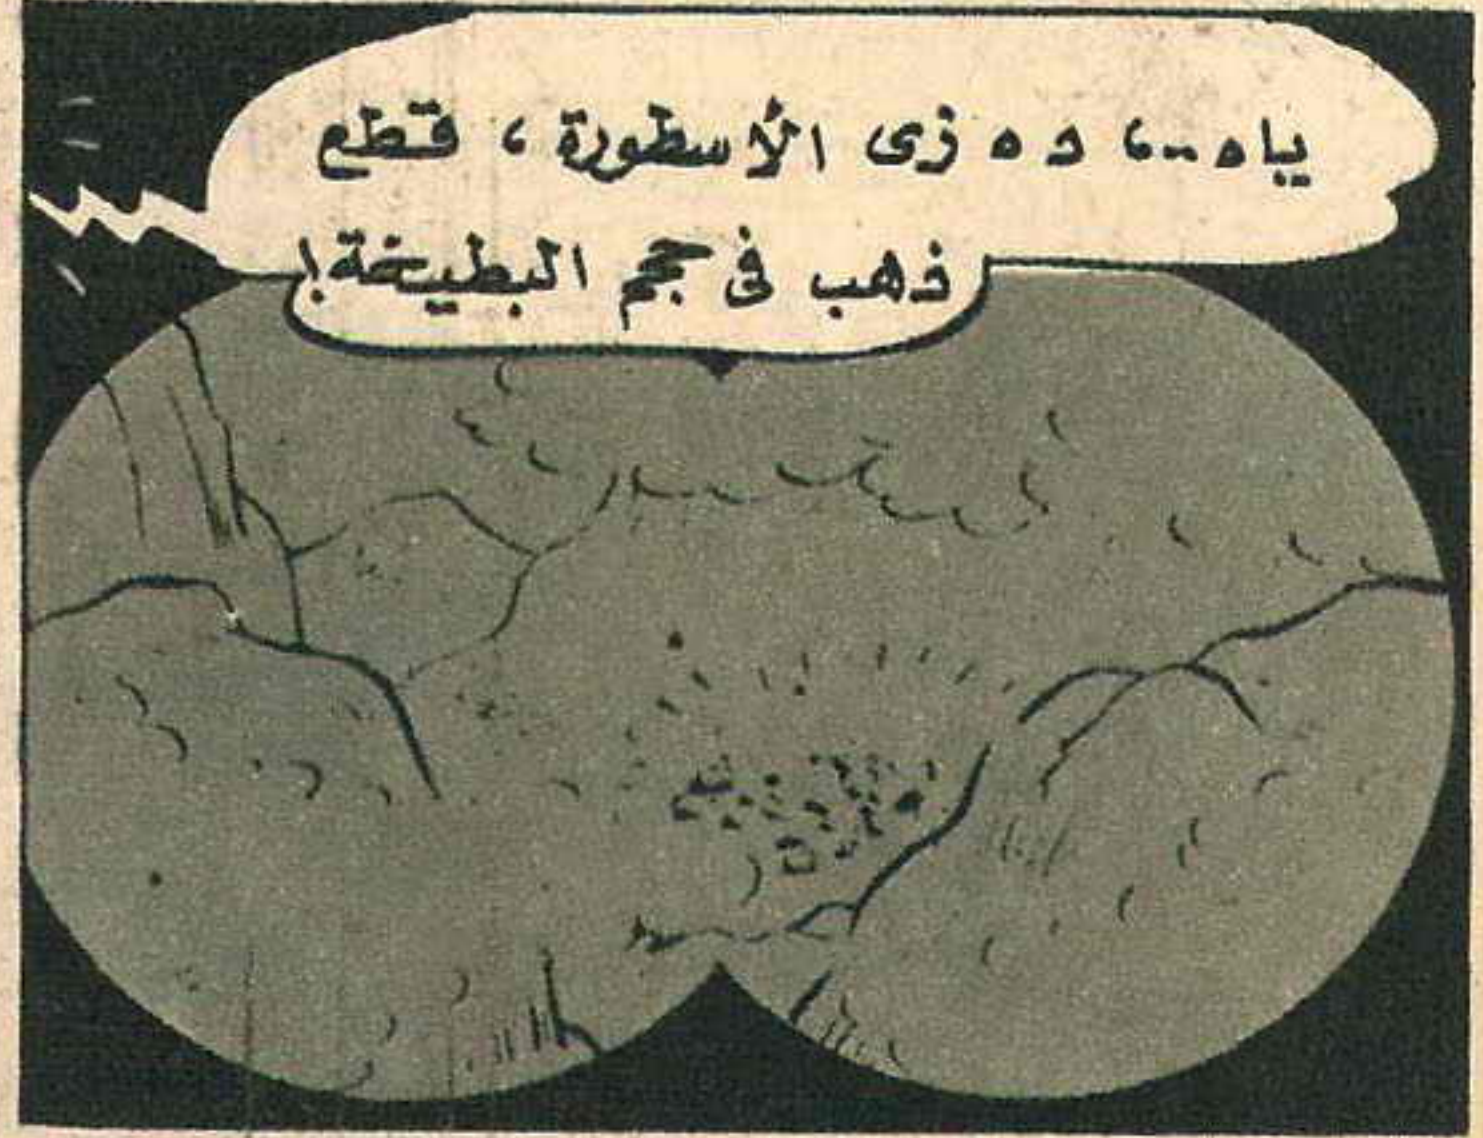 ياه..، ده زى الأسطورة، قطع
ذهب فى حجم البطيخة!